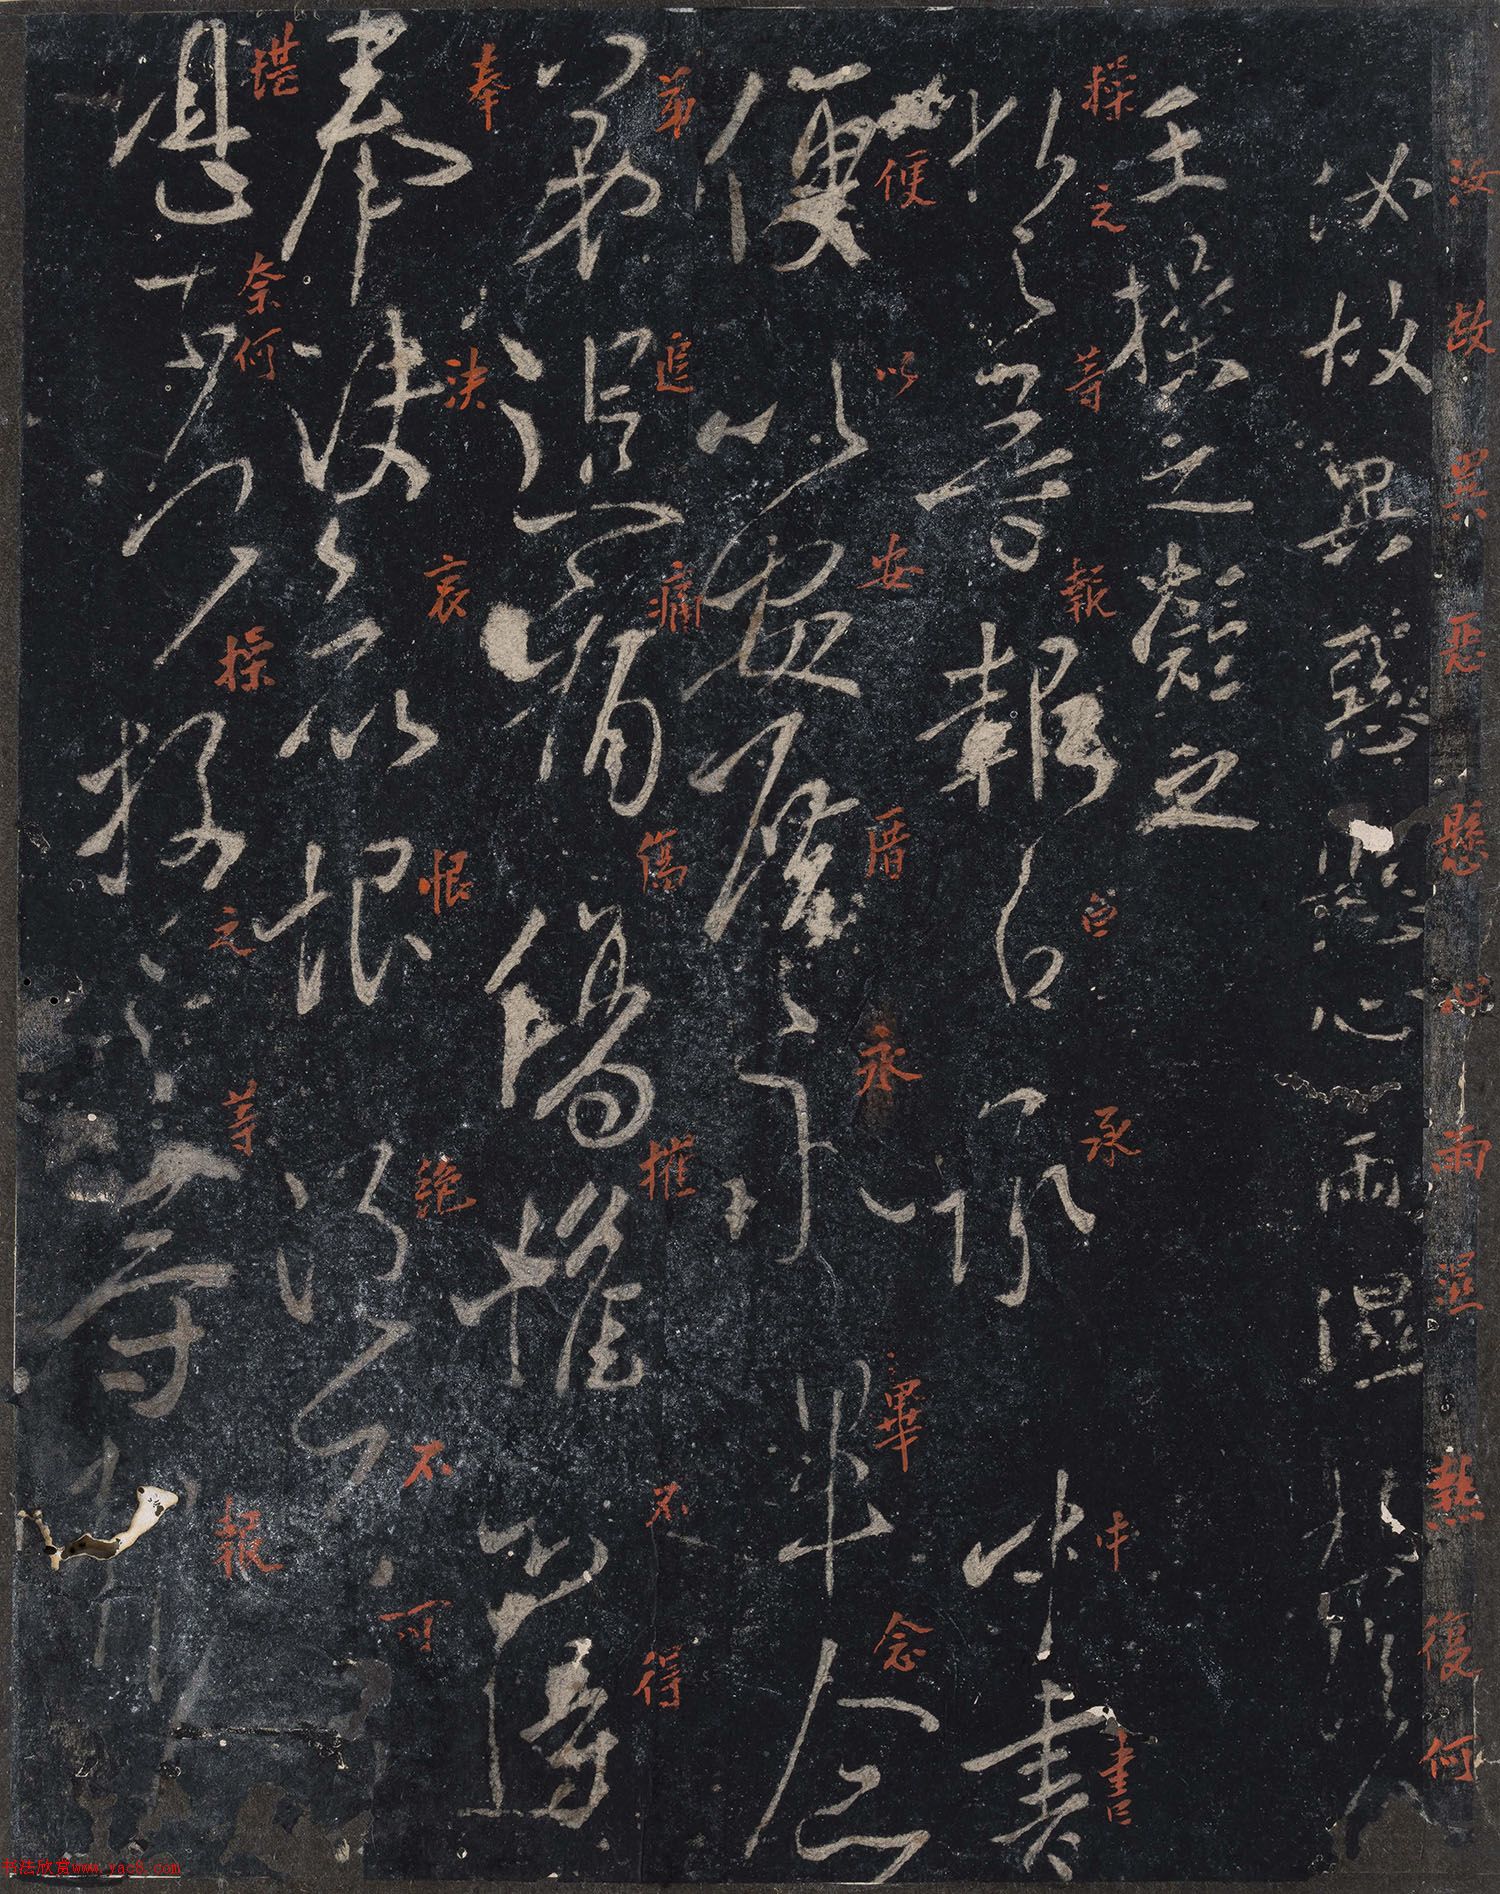 汝故異惡懸心雨濕熱復何
汝故異惡懸心雨濕
王操之凝之
操之等報白承中書
之等報白承中書
便以安厝永畢念
便以安厝永畢念
弟追痛傷摧不得
弟追痛傷摧不得
奉決哀恨絶不可
奉決哀恨絶不可
堪奈何操之等報
堪奈何操之等報
书法欣赏www.yac8.com